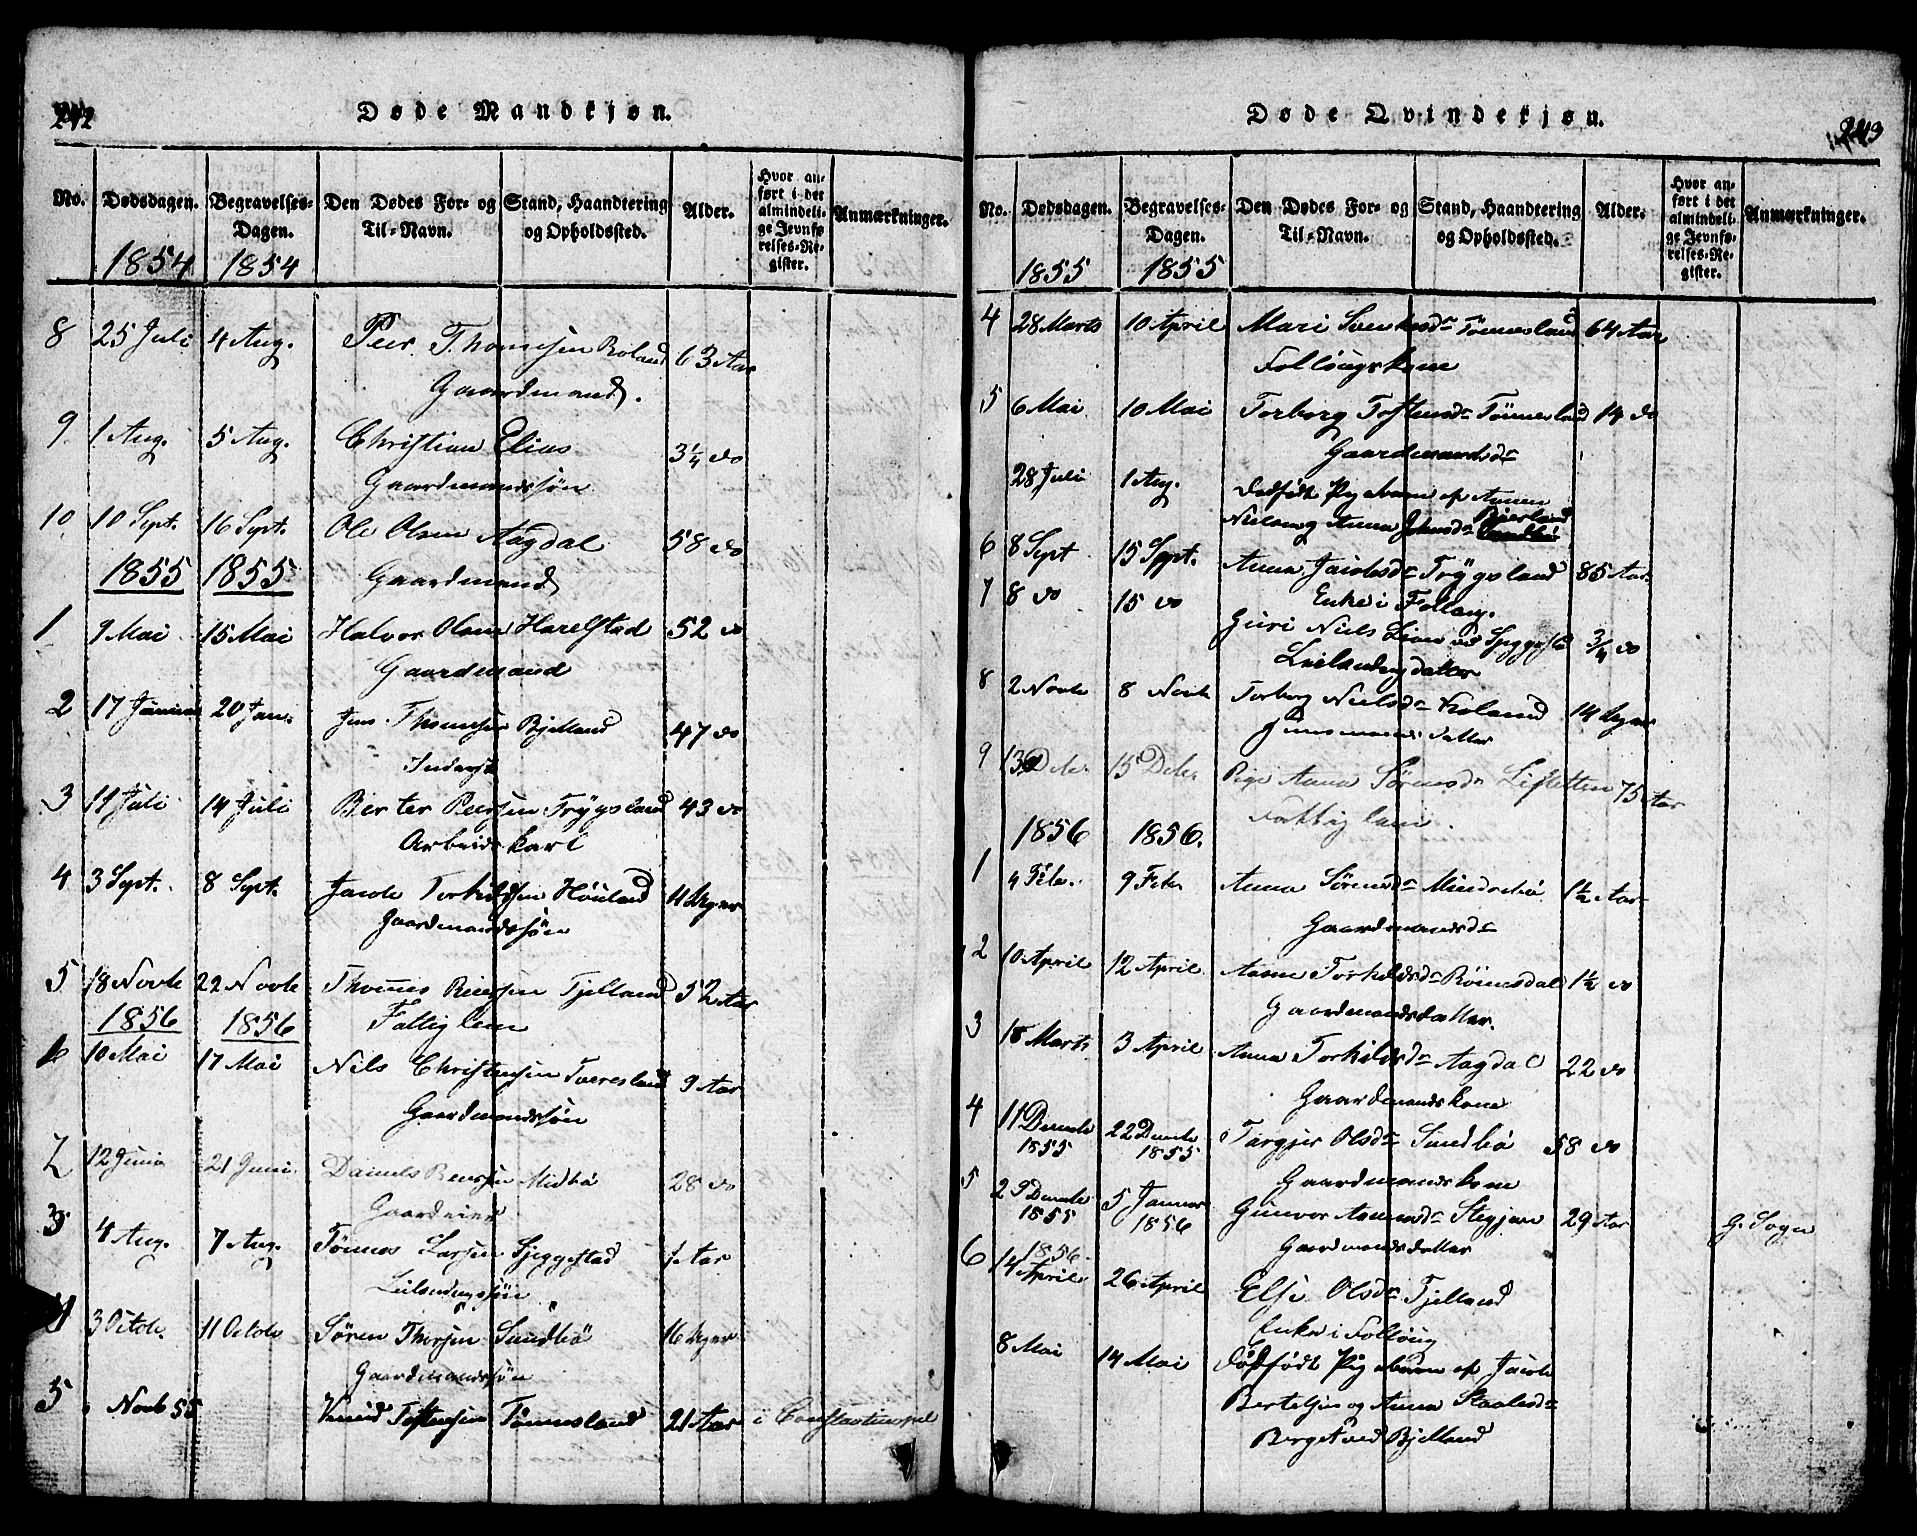 242
Døde Mandkjøn.
No. Dødsdagen. Begravelses-Dagen. Den Dødes For- og Til-Navn. Stand, Haandtering og Opholdssted. Alder. Hvor anført i det almindelige Jevnførelses-Register. Anmærkninger.
1854 1854
8 25 Juli 4 Aug. Peer Thomesen Roland 63 Aar
Gaardmand.
9. 1 Aug. 5 Aug. Christian Elias 3¼ do
Gaardmandssøn
10. 10 Sept. 16 Sept. Ole Olsen Aagdal 58 do
1855 1855 Gaardmand
1 9 Mai 15 Mai Halvor Olsen Harelstad 52 do
Gaardmand
2 17 Januar 20 Jan. Jens Thomesen Bjelland 47 do
Inderst
3 11 Juli 14 Juli Berter Peersen Trygsland 43 do
Arbeidskarl
4 3 Sept. 8 Sept. Jacob Torkildsen Höuland 11 Uger
Gaardmandssøn
5 18 Novbr 22 Novbr Thomes Reiersen Tjelland 52 Aar
1856 1856 Fattiglem
1 10 Mai 17 Mai Nils Christensen Tveresland 9 Aar
Gaardmandssøn
2 12 Juni 21 Juni Daniels Reiersen Midbö 28 do
Gaardeier
3 4 Aug. 7 Aug. Tönnes Larsen Spggestad 1 Aar
Leilendingssøn
4 3 Octob. 11 Octob Sören Thorsen Sundbö 16 Uger
Gaardmandssøn
5 Novb 55 Knud Tostensen Tönnesland 21 Aar i Constantinopel
243
Døde Qvindekjøn.
No. Dødsdagen. Begravelses-Dagen. Den Dødes For- og Til-Navn. Stand, Haandtering og Opholdssted. Alder. Hvor anført i det almindelige Jevnførelses-Register. Anmærkninger.
1855 1855
4 28 Marts 10 April Mari Svenkesdr Tönnesland 64 Aar
Follougskone
5 6 Mai 10 Mai Torborg Tostensdr Tönnesland 14 do
Gaardmandsdr
28 Juli 1 Aug. Dødfödt Pigebarn af Aanen
Nielsen og Anna Jensdr Bjerland
6 8 Sept 15 Sept. Anna Jacobsdr Trygsland 85 Aar
Enke i Follaug.
7 8 do 15 do Guri Niels 3/4 do
Leilendingsdatter
8 2 Novbr 8 Novbr Torborg Nielsdr Roland 14 Uger
datter
9 13 Debr. 15 Debr Pige Anna Sörensdr 75 Aar
1856 1856. Fattiglem.
1 4 Feb. 9 Febr Anna Sörensdr Mindrebö 1½ Aar
Gaardmandsdr
2 10 April 12 April Anne Torkildsdr Römesdal 1½ do
Gaardmandsdatter.
3 18 Marts 3 April Anna Torkildsdr Aagdal 22 do
Gaardmandskone
4 11 Decembr 1855 22 Decembr 1855 Targjer Olsdr Sundbö 58 do
Gaardmandskone
5 29 Decembr 1855 5 Januar 1856 Gunvor Aanensdr Stegjern 29 Aar G. Sogn
Gaardmandsdatter
1856.
6 14 April 26 April Elsi Olsdr Tjelland
Enke i Follöug
8 Mai 14 Mai Dödfödt Pigebarn af Jacob
Bertelsen og Anna Staalesdr
Berget ved Bjelland